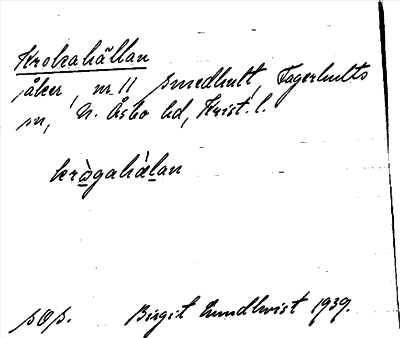 Krokahällan
åker, nr 11 Smedhult, Fagerhults
sn, N. Åsbo hd, Krist. l.
krågahälan
sOp. Birgit Lundkvist 1939.